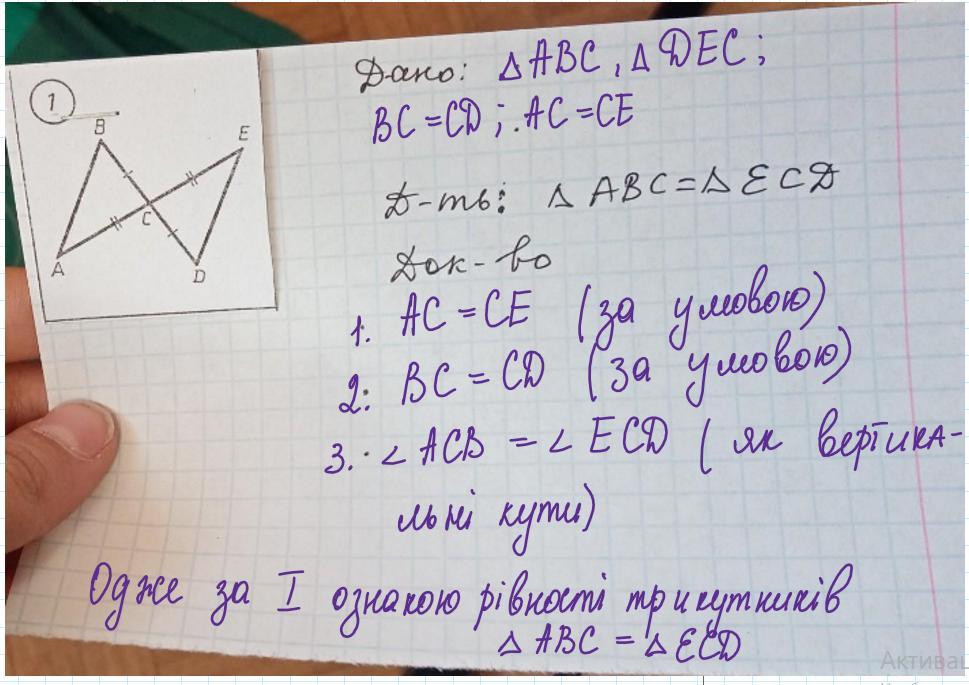 1
B
E
C
A
D
Дано: △ABC, △DEC;
BC = CD; AC = CE
Д-ть: △ABC = △ECD
Док-во
1. AC = CE (за умовою)
2. BC = CD (за умовою)
3. ∠ACB = ∠ECD (як вертика-
льні кути)
Одже за I ознакою рівності трикутників
△ABC = △ECD